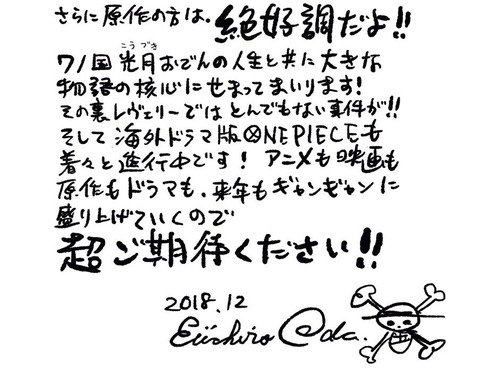 さらに原作の方は、絶好調だよ!!
こうづき
ワノ国 光月おでんの人生と共に大きな
物語の核心にせまってまいります!
その裏レヴェリーではとんでもない事件が!!
そして海外ドラマ版ONEPIECEも
着々と進行中です! アニメも映画も
原作もドラマも、来年もギャンギャンに
盛り上げていくので
超ご期待ください!!
2018.12
Eiichiro Oda.